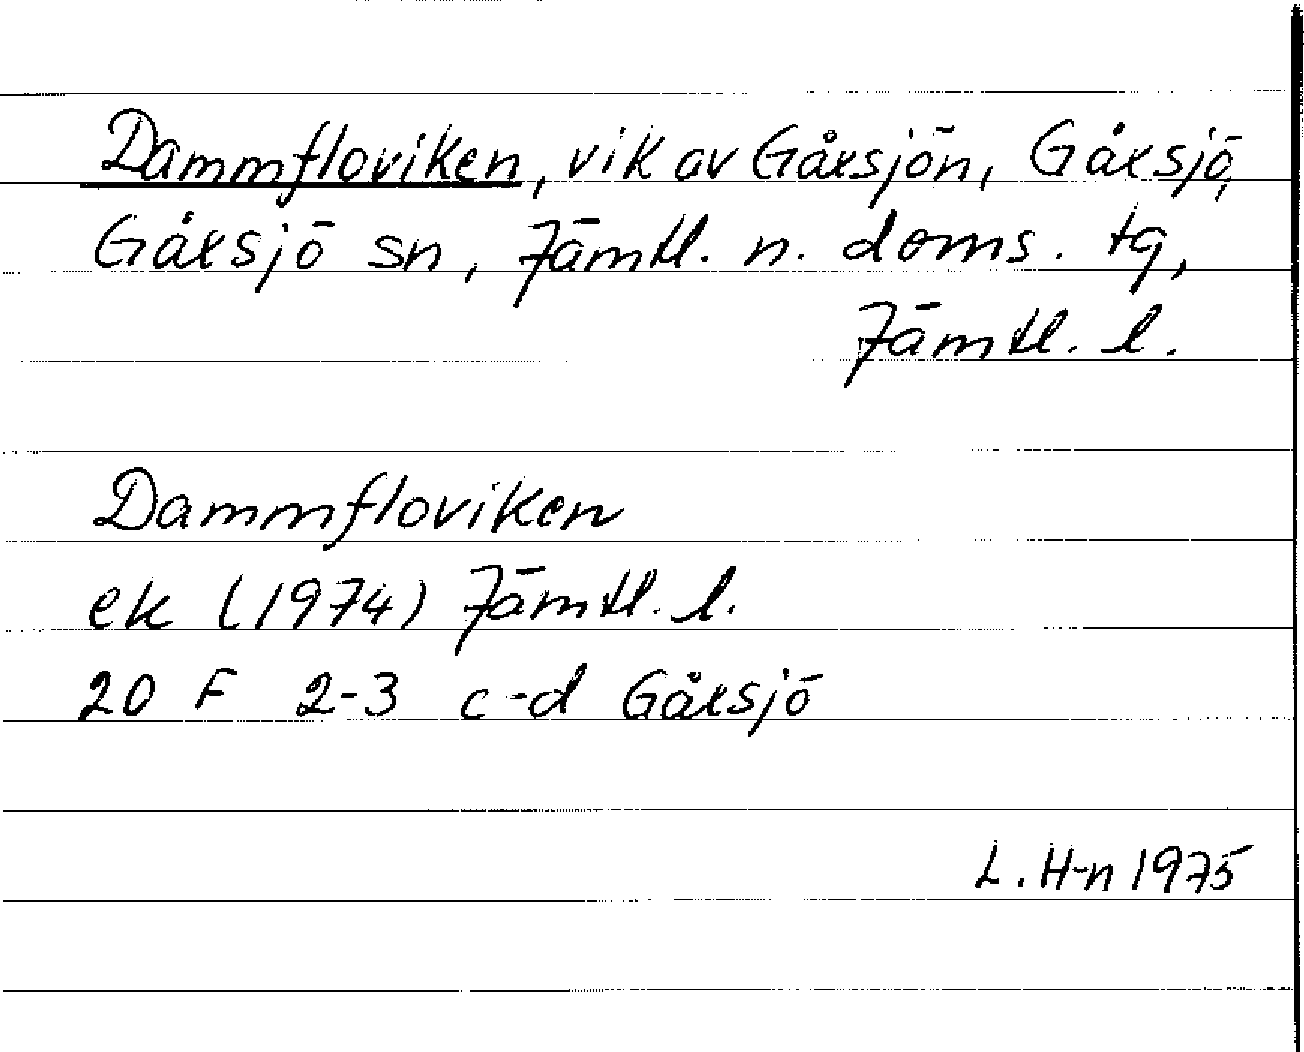 Dammfloviken, vik av Gåxsjön, Gåxsjö,
Gåxsjö sn, Jämtl. n. doms. tg,
Jämtl. l.
Dammfloviken
ek (1974) Jämtl. l.
20 F 2-3 c-d Gåxsjö
L. H-n 1975